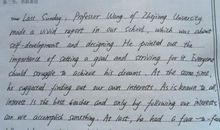 Last Sunday, Professor Wang of Zhejiang University
made a vivid report in our school, which was about
self-development and designing. He pointed out the
importance of setting a goal and striving for it. Everyone
should struggle to achieve his dreams. At the same time,
he suggested finding out our own interests. As is known to all,
interest is the best teacher and only by following our interests
can we accomplish something. At last, he had a face-to-fa